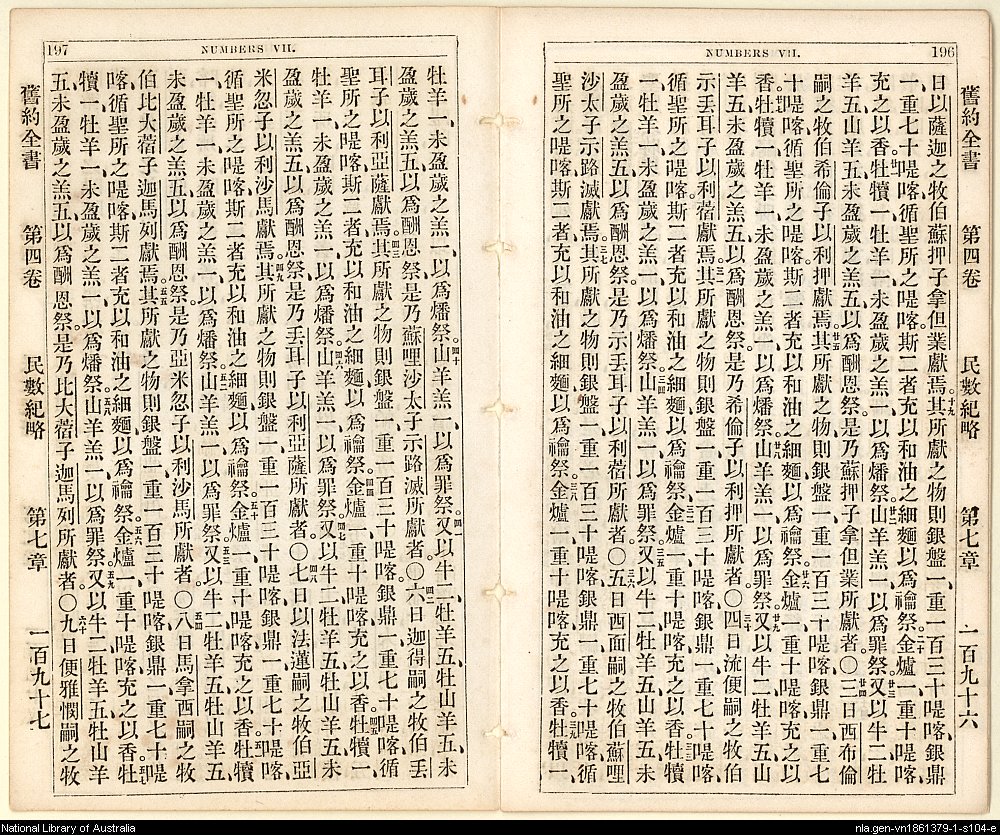 NUMBERS VII. 196
舊約全書 第四卷 民數紀略 第七章 一百九十六
日以薩迦之牧伯蘇押子拿但業獻焉。十九其所獻之物則銀盤一、重一百三十㖷喀、銀鼎
一、重七十㖷喀、循聖所之㖷喀、斯二者充以和油之細麵以爲禴祭。二十金爐一、重十㖷喀、
充之以香。廿一牡犢一、牡羊一、未盈歲之羔一、以爲燔祭。廿二山羊羔一、以爲罪祭。廿三又以牛二、牡
羊五、山羊五、未盈歲之羔五、以爲酬恩祭。是乃蘇押子拿但業所獻者。〇廿四三日西布倫
嗣之牧伯希倫子以利押獻焉。廿五其所獻之物則銀盤一、重一百三十㖷喀、銀鼎一、重七
十㖷喀、循聖所之㖷喀、斯二者充以和油之細麵以爲禴祭。廿六金爐一、重十㖷喀、充之以
香。廿七牡犢一、牡羊一、未盈歲之羔一、以爲燔祭。廿八山羊羔一、以爲罪祭。廿九又以牛二、牡羊五、山
羊五、未盈歲之羔五、以爲酬恩祭。是乃希倫子以利押所獻者。〇三十四日流便嗣之牧伯
示丟耳子以利蓿獻焉。三一其所獻之物則銀盤一、重一百三十㖷喀、銀鼎一、重七十㖷喀、
循聖所之㖷喀、斯二者充以和油之細麵以爲禴祭。三二金爐一、重十㖷喀、充之以香。三三牡犢
一、牡羊一、未盈歲之羔一、以爲燔祭。三四山羊羔一、以爲罪祭。三五又以牛二、牡羊五、山羊五、未
盈歲之羔五、以爲酬恩祭。是乃示丟耳子以利蓿所獻者。〇三六五日西面嗣之牧伯蘇哩
沙太子示路滅獻焉。三七其所獻之物則銀盤一、重一百三十㖷喀、銀鼎一、重七十㖷喀、循
聖所之㖷喀、斯二者充以和油之細麵以爲禴祭。三八金爐一、重十㖷喀、充之以香。三九牡犢一、
NUMBERS VII. 197
牡羊一、未盈歲之羔一、以爲燔祭。四十山羊羔一、以爲罪祭。四一又以牛二、牡羊五、牡山羊五、未
盈歲之羔五、以爲酬恩祭。是乃蘇哩沙太子示路滅所獻者。〇四二六日迦得嗣之牧伯丟
耳子以利亞薩獻焉。四三其所獻之物則銀盤一、重一百三十㖷喀、銀鼎一、重七十㖷喀、循
聖所之㖷喀、斯二者充以和油之細麵以爲禴祭。四四金爐一、重十㖷喀、充之以香。四五牡犢一、
牡羊一、未盈歲之羔一、以爲燔祭。四六山羊羔一、以爲罪祭。四七又以牛二、牡羊五、牡山羊五、未
盈歲之羔五、以爲酬恩祭。是乃丟耳子以利亞薩所獻者。〇四八七日以法蓮嗣之牧伯亞
米忽子以利沙馬獻焉。四九其所獻之物則銀盤一、重一百三十㖷喀、銀鼎一、重七十㖷喀、
循聖所之㖷喀、斯二者充以和油之細麵以爲禴祭。五十金爐一、重十㖷喀、充之以香。五一牡犢
一、牡羊一、未盈歲之羔一、以爲燔祭。五二山羊羔一、以爲罪祭。五三又以牛二、牡羊五、牡山羊五、
未盈歲之羔五、以爲酬恩祭。是乃亞米忽子以利沙馬所獻者。〇五四八日馬拿西嗣之牧
伯比大蓿子迦馬列獻焉。五五其所獻之物則銀盤一、重一百三十㖷喀、銀鼎一、重七十㖷
喀、循聖所之㖷喀、斯二者充以和油之細麵以爲禴祭。五六金爐一、重十㖷喀、充之以香。五七牡
犢一、牡羊一、未盈歲之羔一、以爲燔祭。五八山羊羔一、以爲罪祭。五九又以牛二、牡羊五、牡山羊
五、未盈歲之羔五、以爲酬恩祭。是乃比大蓿子迦馬列所獻者。〇六十九日便雅憫嗣之牧
舊約全書 第四卷 民數紀略 第七章 一百九十七
National Library of Australia
nla.gen-vn1861379-1-s104-e